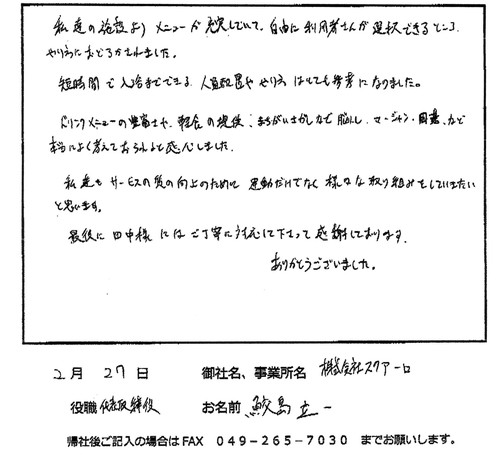 私達の施設より メニューが充実していて、自由に利用者さんが選択できるところ、
やり方におどろかされました。
短時間で入浴までできる、人員配置ややり方はとても参考になりました。
ドリンクメニューの豊富さや、軽食の提供、まちがいさがしなど脳トレ、マージャン、囲碁、など
本当によく考えておられると感心しました。
私達もサービスの質の向上のために運動だけでなく様々な取り組みをしていきたい
と思います。
最後に田中様にはご丁寧に対応して下さって感謝しております。
ありがとうございました。
2月 27日 御社名、事業所名 株式会社スクアーロ
役職 代表取締役 お名前 鮫島 立一
帰社後ご記入の場合はFAX 049-265-7030 までお願いします。